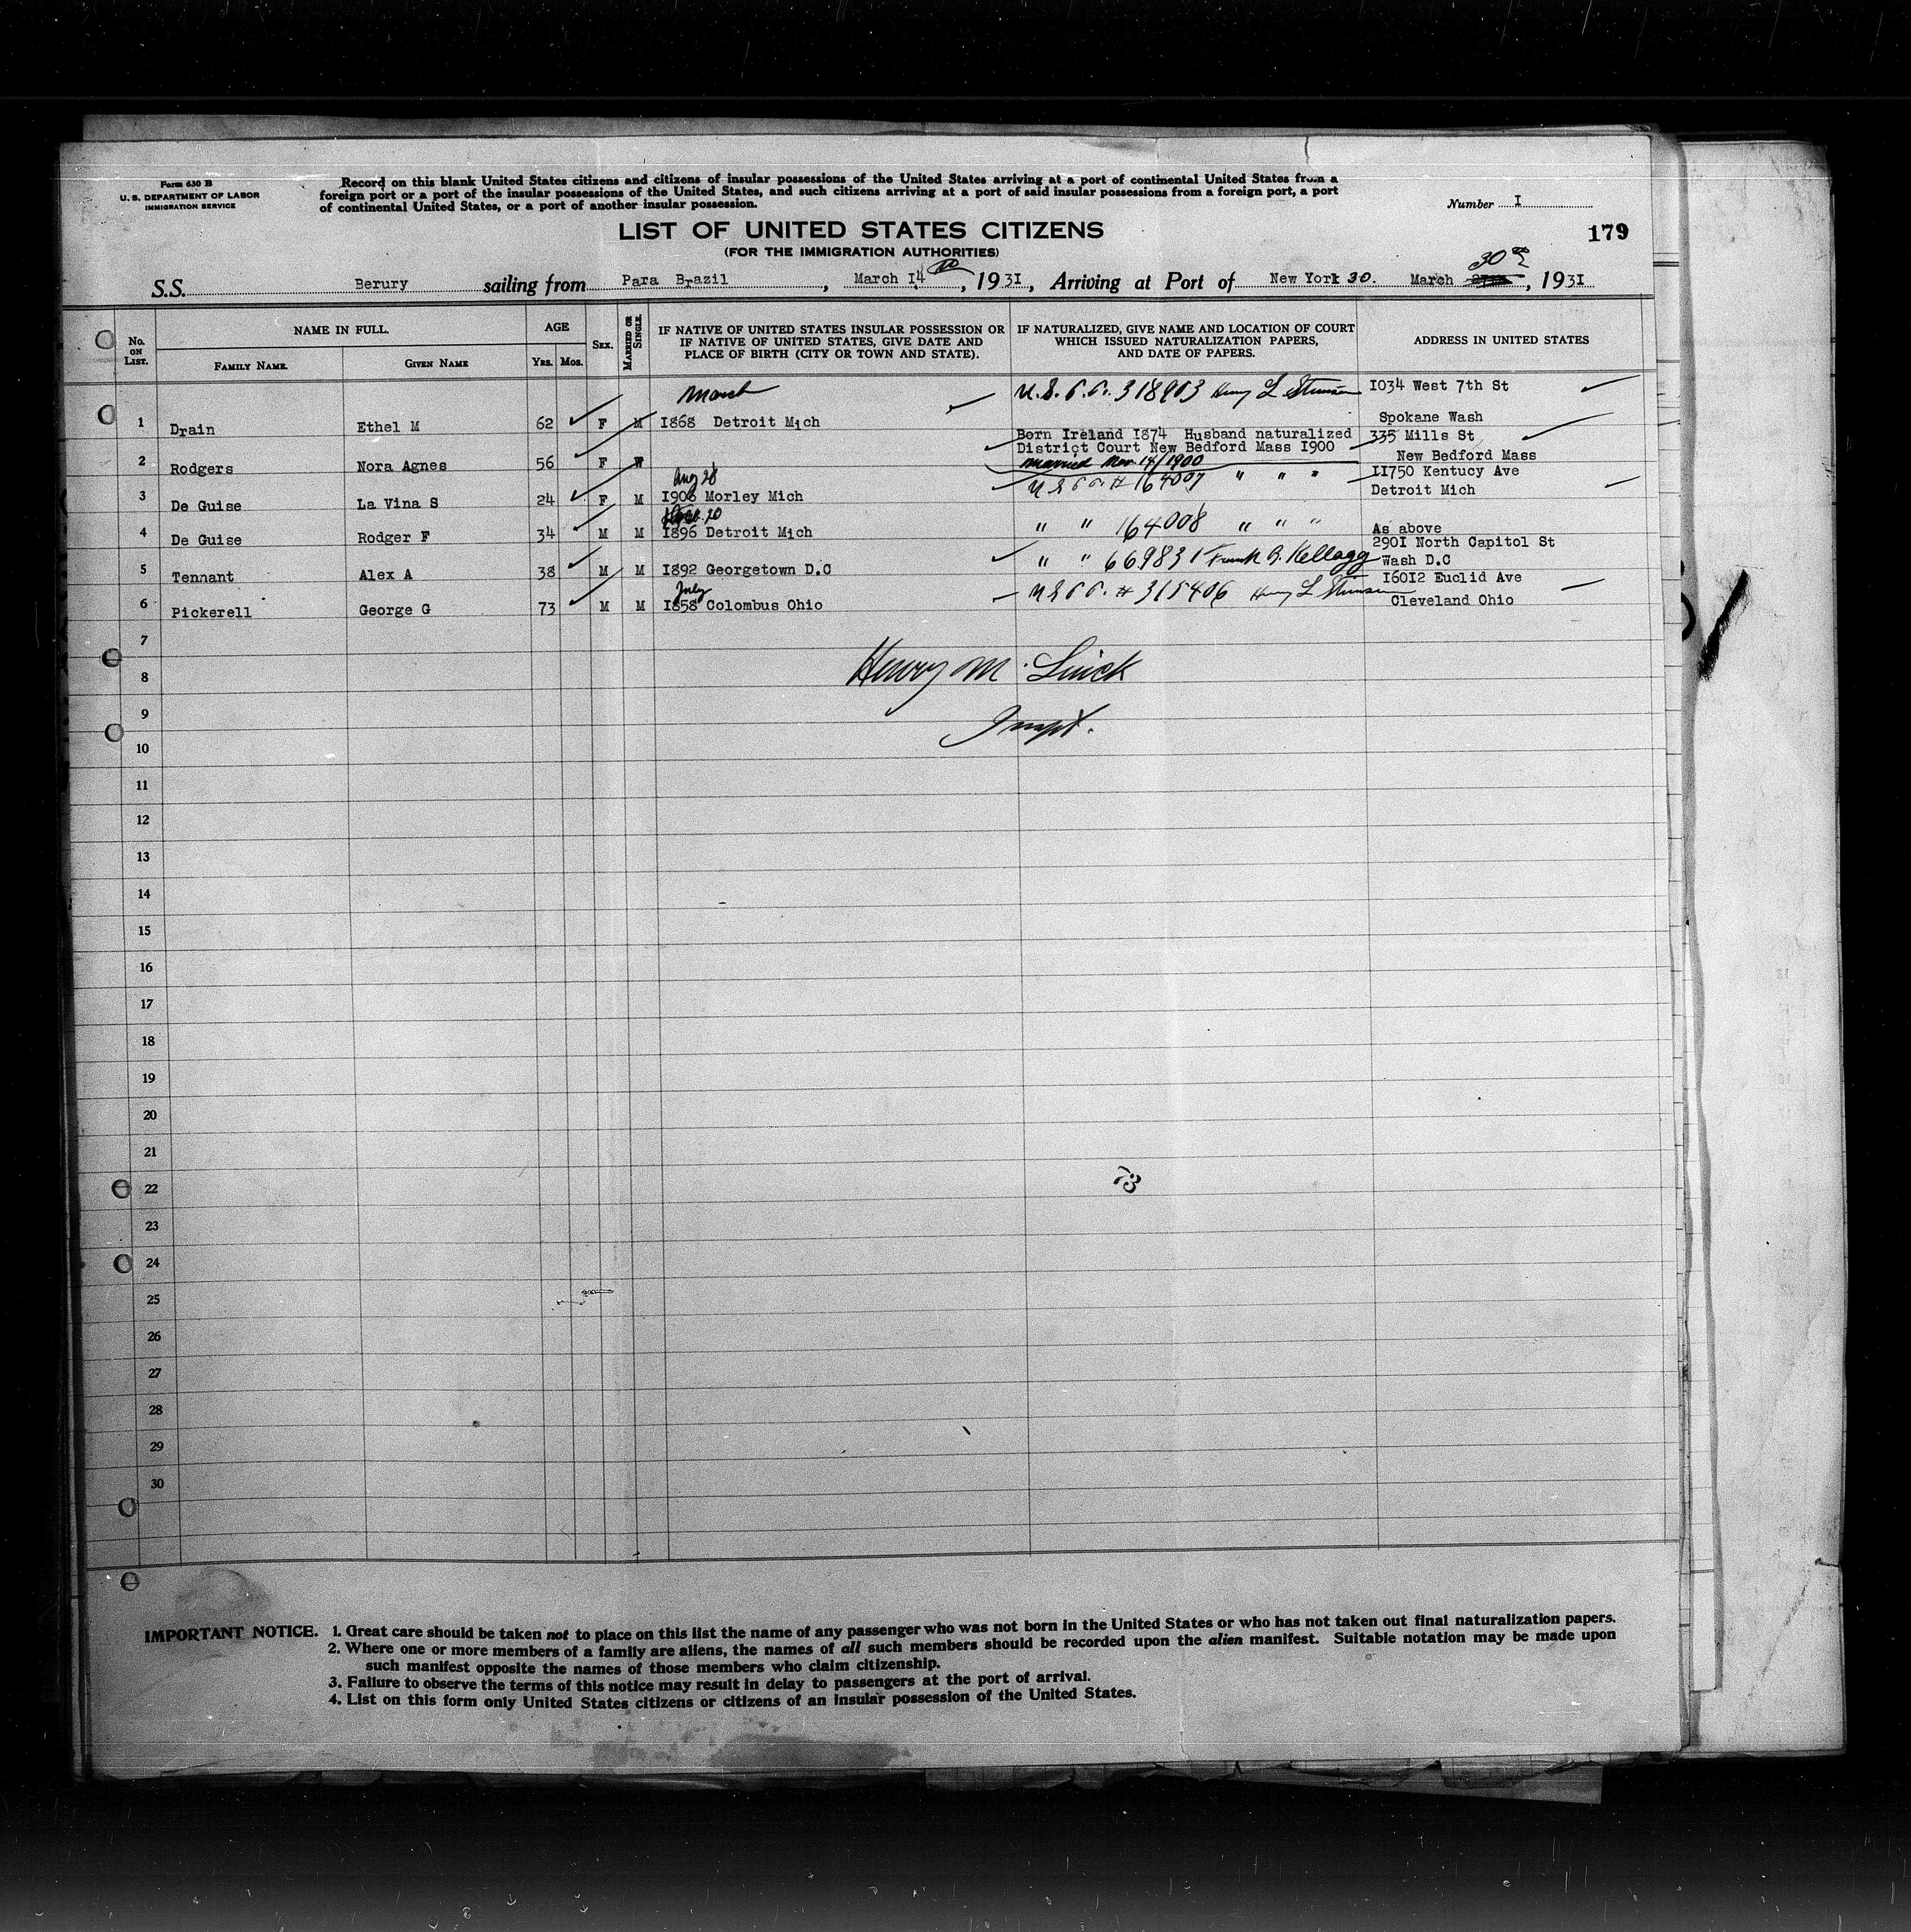 Form 630 B
U. S. DEPARTMENT OF LABOR
IMMIGRATION SERVICE
Record on this blank United States citizens and citizens of insular possessions of the United States arriving at a port of continental United States from a
foreign port or a port of the insular possessions of the United States, and such citizens arriving at a port of said insular possessions from a foreign port, a port
of continental United States, or a port of another insular possession.
Number I
179
LIST OF UNITED STATES CITIZENS
(FOR THE IMMIGRATION AUTHORITIES)
30th
S.S. Berury sailing from Para Brazil, March 14th, 1931, Arriving at Port of New York 30. March, 1931
No. ON LIST. NAME IN FULL. AGE SEX. MARRIED OR SINGLE. IF NATIVE OF UNITED STATES INSULAR POSSESSION OR IF NATIVE OF UNITED STATES, GIVE DATE AND PLACE OF BIRTH (CITY OR TOWN AND STATE). IF NATURALIZED, GIVE NAME AND LOCATION OF COURT WHICH ISSUED NATURALIZATION PAPERS, AND DATE OF PAPERS. ADDRESS IN UNITED STATES
FAMILY NAME. GIVEN NAME YRS. MOS.
March U.S.P.P. 318903 Henry L Stimson 1034 West 7th St
1 Drain Ethel M 62 F M I868 Detroit Mich Spokane Wash
Born Ireland I874 Husband naturalized 335 Mills St
District Court New Bedford Mass I900
2 Rodgers Nora Agnes 56 F W married Nov 14/1900 New Bedford Mass
Aug 28 U S P P. # 164007 " " " II750 Kentucy Ave
3 De Guise La Vina S 24 F M I906 Morley Mich Detroit Mich
20 " " 164008 " " "
4 De Guise Rodger F 34 M M I896 Detroit Mich As above
2901 North Capitol St
" " 669831 Frank B. Kellogg
5 Tennant Alex A 38 M M I892 Georgetown D.C Wash D.C
July U S P P. # 315406 Henry L Stimson I60I2 Euclid Ave
6 Pickerell George G 73 M M I858 Colombus Ohio Cleveland Ohio
7
8 Henry M. Linick
9 Inspt.
10
11
12
13
14
15
16
17
18
19
20
21
22
73
23
24
25
26
27
28
29
30
IMPORTANT NOTICE. 1. Great care should be taken not to place on this list the name of any passenger who was not born in the United States or who has not taken out final naturalization papers.
2. Where one or more members of a family are aliens, the names of all such members should be recorded upon the alien manifest. Suitable notation may be made upon
such manifest opposite the names of those members who claim citizenship.
3. Failure to observe the terms of this notice may result in delay to passengers at the port of arrival.
4. List on this form only United States citizens or citizens of an insular possession of the United States.